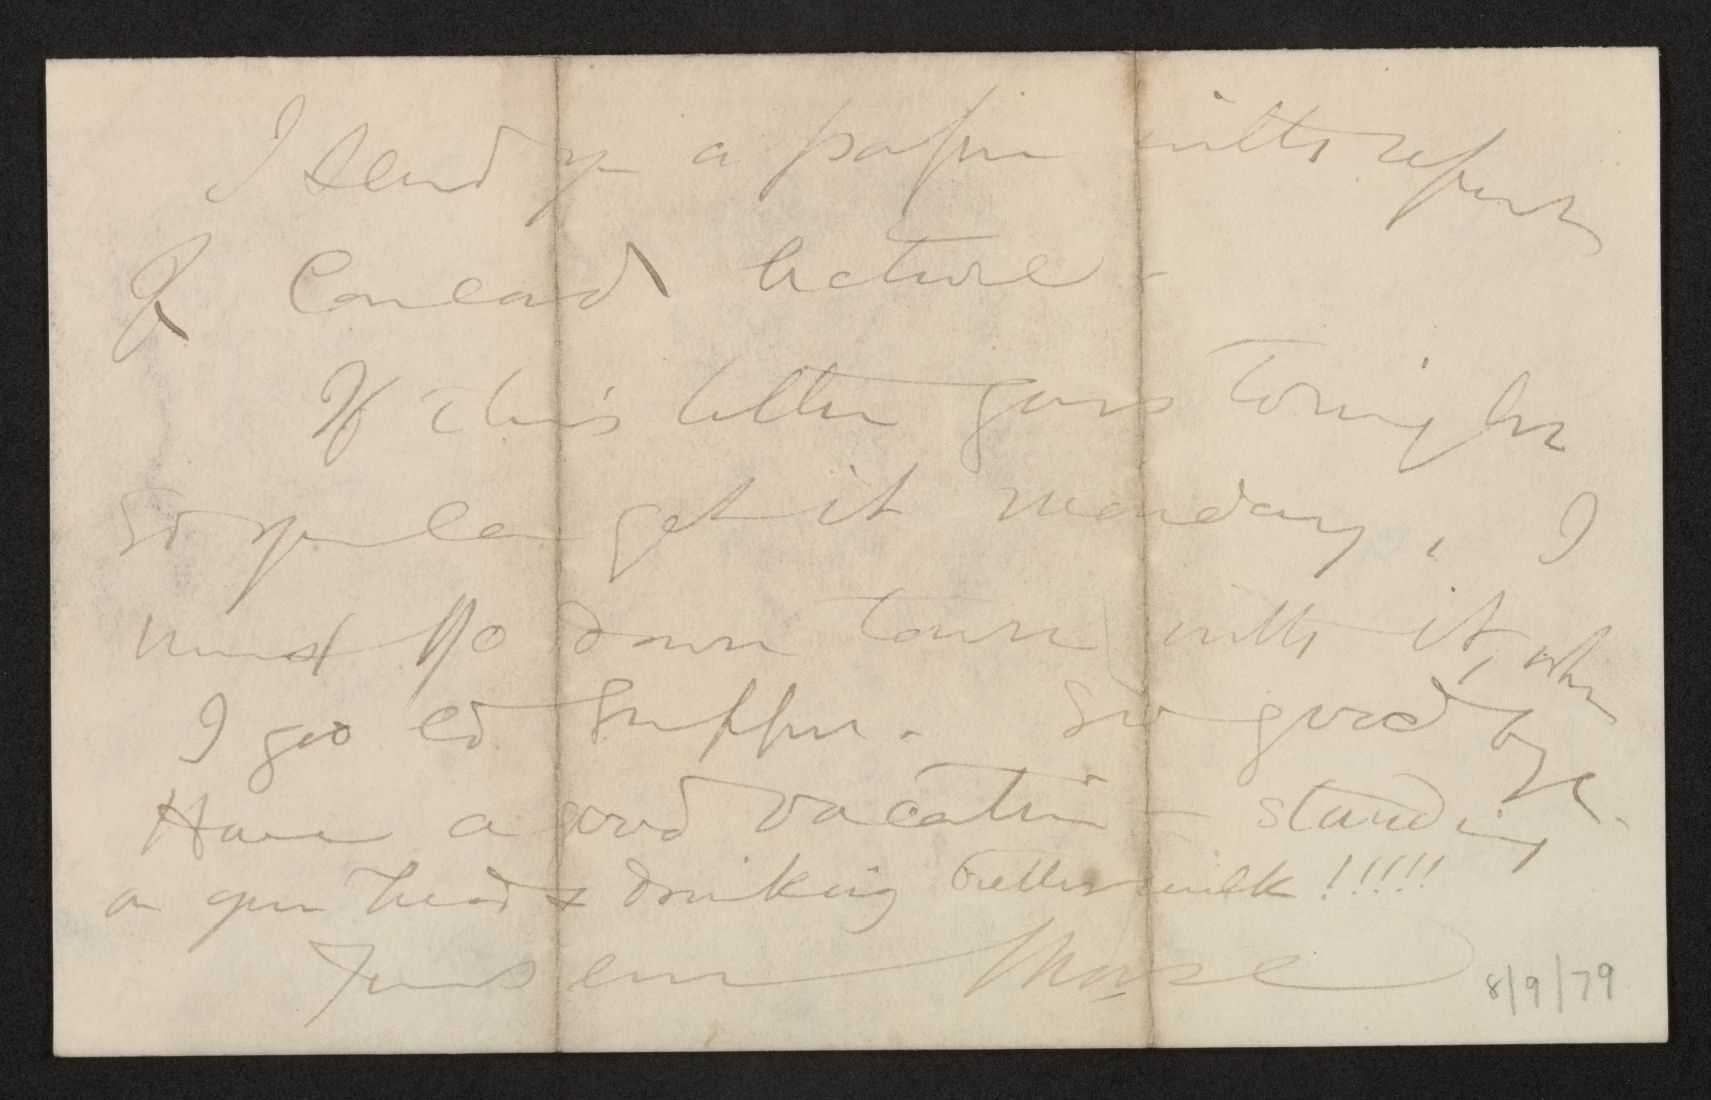 I send you a paper with report
of Concord lecture -
If this letter goes tonight
so you can get it Monday, I
must go down town with it, when
I go to supper. So good bye.
Have a good vacation - standing
on your head & drinking buttermilk!!!!!
Yours ever Morse
8/9/79